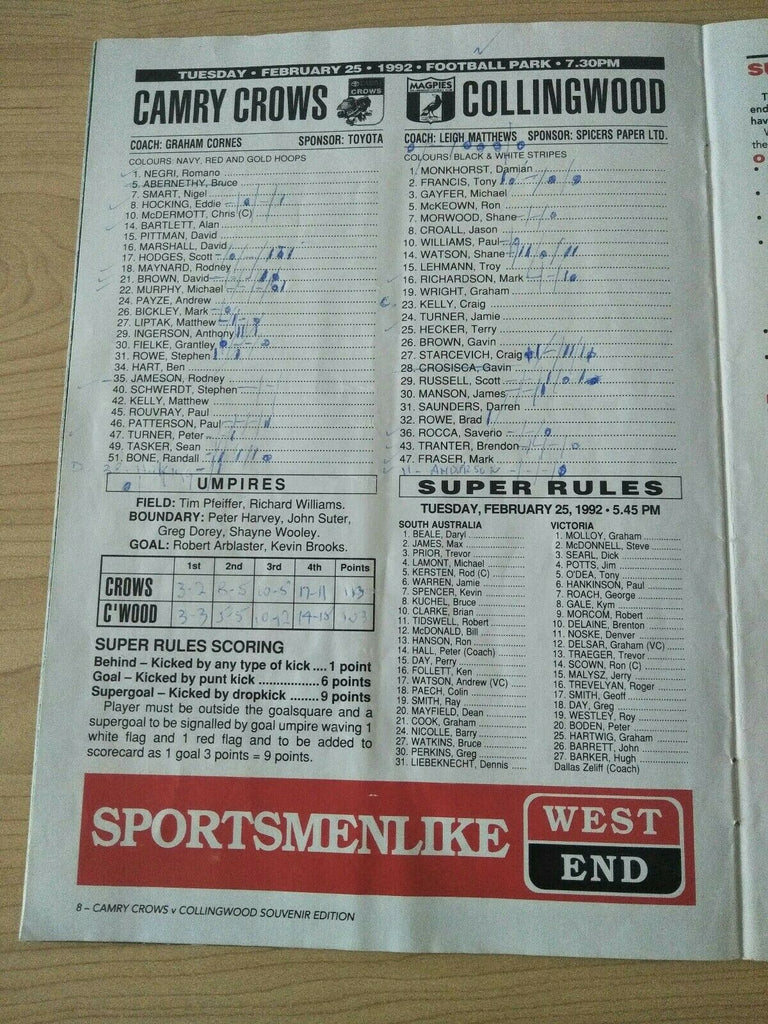 TUESDAY • FEBRUARY 25 • 1992 • FOOTBALL PARK • 7.30PM
CAMRY CROWS
CROWS
COACH: GRAHAM CORNES SPONSOR: TOYOTA
COLOURS: NAVY, RED AND GOLD HOOPS
1. NEGRI, Romano
5. ABERNETHY, Bruce
7. SMART, Nigel
8. HOCKING, Eddie
10. McDERMOTT, Chris (C)
14. BARTLETT, Alan
15. PITTMAN, David
16. MARSHALL, David
17. HODGES, Scott
18. MAYNARD, Rodney
21. BROWN, David
22. MURPHY, Michael
24. PAYZE, Andrew
26. BICKLEY, Mark
27. LIPTAK, Matthew
29. INGERSON, Anthony
30. FIELKE, Grantley
31. ROWE, Stephen
34. HART, Ben
35. JAMESON, Rodney
40. SCHWERDT, Stephen
42. KELLY, Matthew
45. ROUVRAY, Paul
46. PATTERSON, Paul
47. TURNER, Peter
49. TASKER, Sean
51. BONE, Randall
UMPIRES
FIELD: Tim Pfeiffer, Richard Williams.
BOUNDARY: Peter Harvey, John Suter,
Greg Dorey, Shayne Wooley.
GOAL: Robert Arblaster, Kevin Brooks.
1st 2nd 3rd 4th Points
CROWS 3-2 10-5 17-11 113
C'WOOD 3-3 5-5 10-12
SUPER RULES SCORING
Behind – Kicked by any type of kick .... 1 point
Goal – Kicked by punt kick ................. 6 points
Supergoal – Kicked by dropkick ........ 9 points
Player must be outside the goalsquare and a
supergoal to be signalled by goal umpire waving 1
white flag and 1 red flag and to be added to
scorecard as 1 goal 3 points = 9 points.
MAGPIES
COLLINGWOOD
COACH: LEIGH MATTHEWS SPONSOR: SPICERS PAPER LTD.
COLOURS: BLACK & WHITE STRIPES
1. MONKHORST, Damian
2. FRANCIS, Tony
3. GAYFER, Michael
5. McKEOWN, Ron
7. MORWOOD, Shane
8. CROALL, Jason
10. WILLIAMS, Paul
14. WATSON, Shane
15. LEHMANN, Troy
16. RICHARDSON, Mark
19. WRIGHT, Graham
23. KELLY, Craig
24. TURNER, Jamie
25. HECKER, Terry
26. BROWN, Gavin
27. STARCEVICH, Craig
28. CROSISCA, Gavin
29. RUSSELL, Scott
30. MANSON, James
31. SAUNDERS, Darren
32. ROWE, Brad
36. ROCCA, Saverio
43. TRANTER, Brendon
47. FRASER, Mark
11- ANDERSON
SUPER RULES
TUESDAY, FEBRUARY 25, 1992 • 5.45 PM
SOUTH AUSTRALIA
1. BEALE, Daryl
2. JAMES, Max
3. PRIOR, Trevor
4. LAMONT, Michael
5. KERSTEN, Rod (C)
6. WARREN, Jamie
7. SPENCER, Kevin
8. KUCHEL, Bruce
10. CLARKE, Brian
11. TIDSWELL, Robert
12. McDONALD, Bill
13. HANSON, Ron
14. HALL, Peter (Coach)
15. DAY, Perry
16. FOLLETT, Ken
17. WATSON, Andrew (VC)
18. PAECH, Colin
19. SMITH, Ray
20. MAYFIELD, Dean
21. COOK, Graham
24. NICOLLE, Barry
27. WATKINS, Bruce
30. PERKINS, Greg
31. LIEBEKNECHT, Dennis
VICTORIA
1. MOLLOY, Graham
2. McDONNELL, Steve
3. SEARL, Dick
4. POTTS, Jim
5. O'DEA, Tony
6. HANKINSON, Paul
7. ROACH, George
8. GALE, Kym
9. MORCOM, Robert
10. DELAINE, Brenton
11. NOSKE, Denver
12. DELSAR, Graham (VC)
13. TRAEGER, Trevor
14. SCOWN, Ron (C)
15. MALYSZ, Jerry
16. TREVELYAN, Roger
17. SMITH, Geoff
18. DAY, Greg
19. WESTLEY, Roy
20. BODEN, Peter
25. HARTWIG, Graham
26. BARRETT, John
27. BARKER, Hugh
Dallas Zeliff (Coach)
SPORTSMENLIKE
WEST
END
8 – CAMRY CROWS v COLLINGWOOD SOUVENIR EDITION